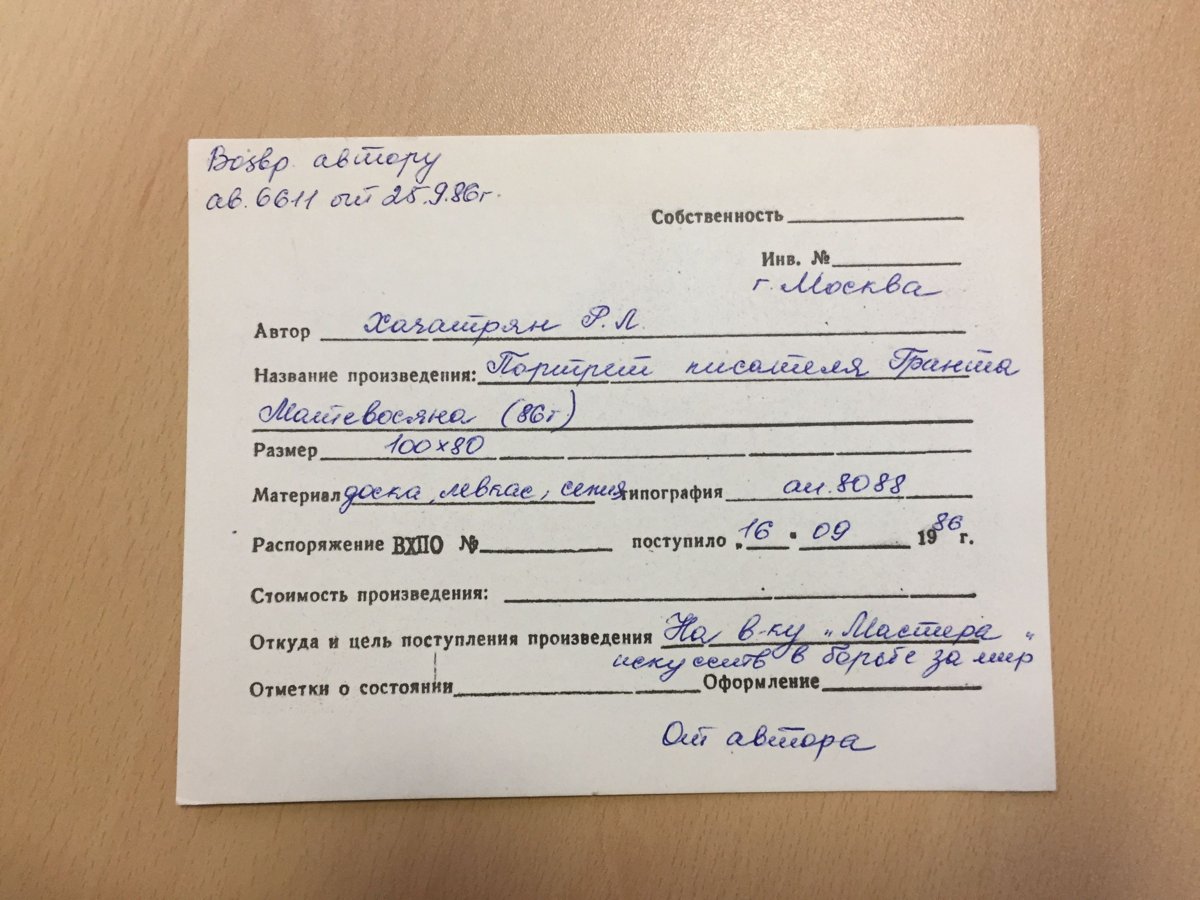 Возвр. автору
ав. 6611 от 25.9.86г.
Собственность
Инв. №
г. Москва
Автор Хачатрян Р.Л.
Название произведения: Портрет писателя Гранта
Матевосяна (86г)
Размер 100х80
Материал доска, левкас, сепия типография ап. 8088
Распоряжение ВХПО № поступило „16 " 09 1986 г.
Стоимость произведения:
Откуда и цель поступления произведения На в-ку „Мастера "
искусств в борьбе за мир
Отметки о состоянии Оформление
От автора